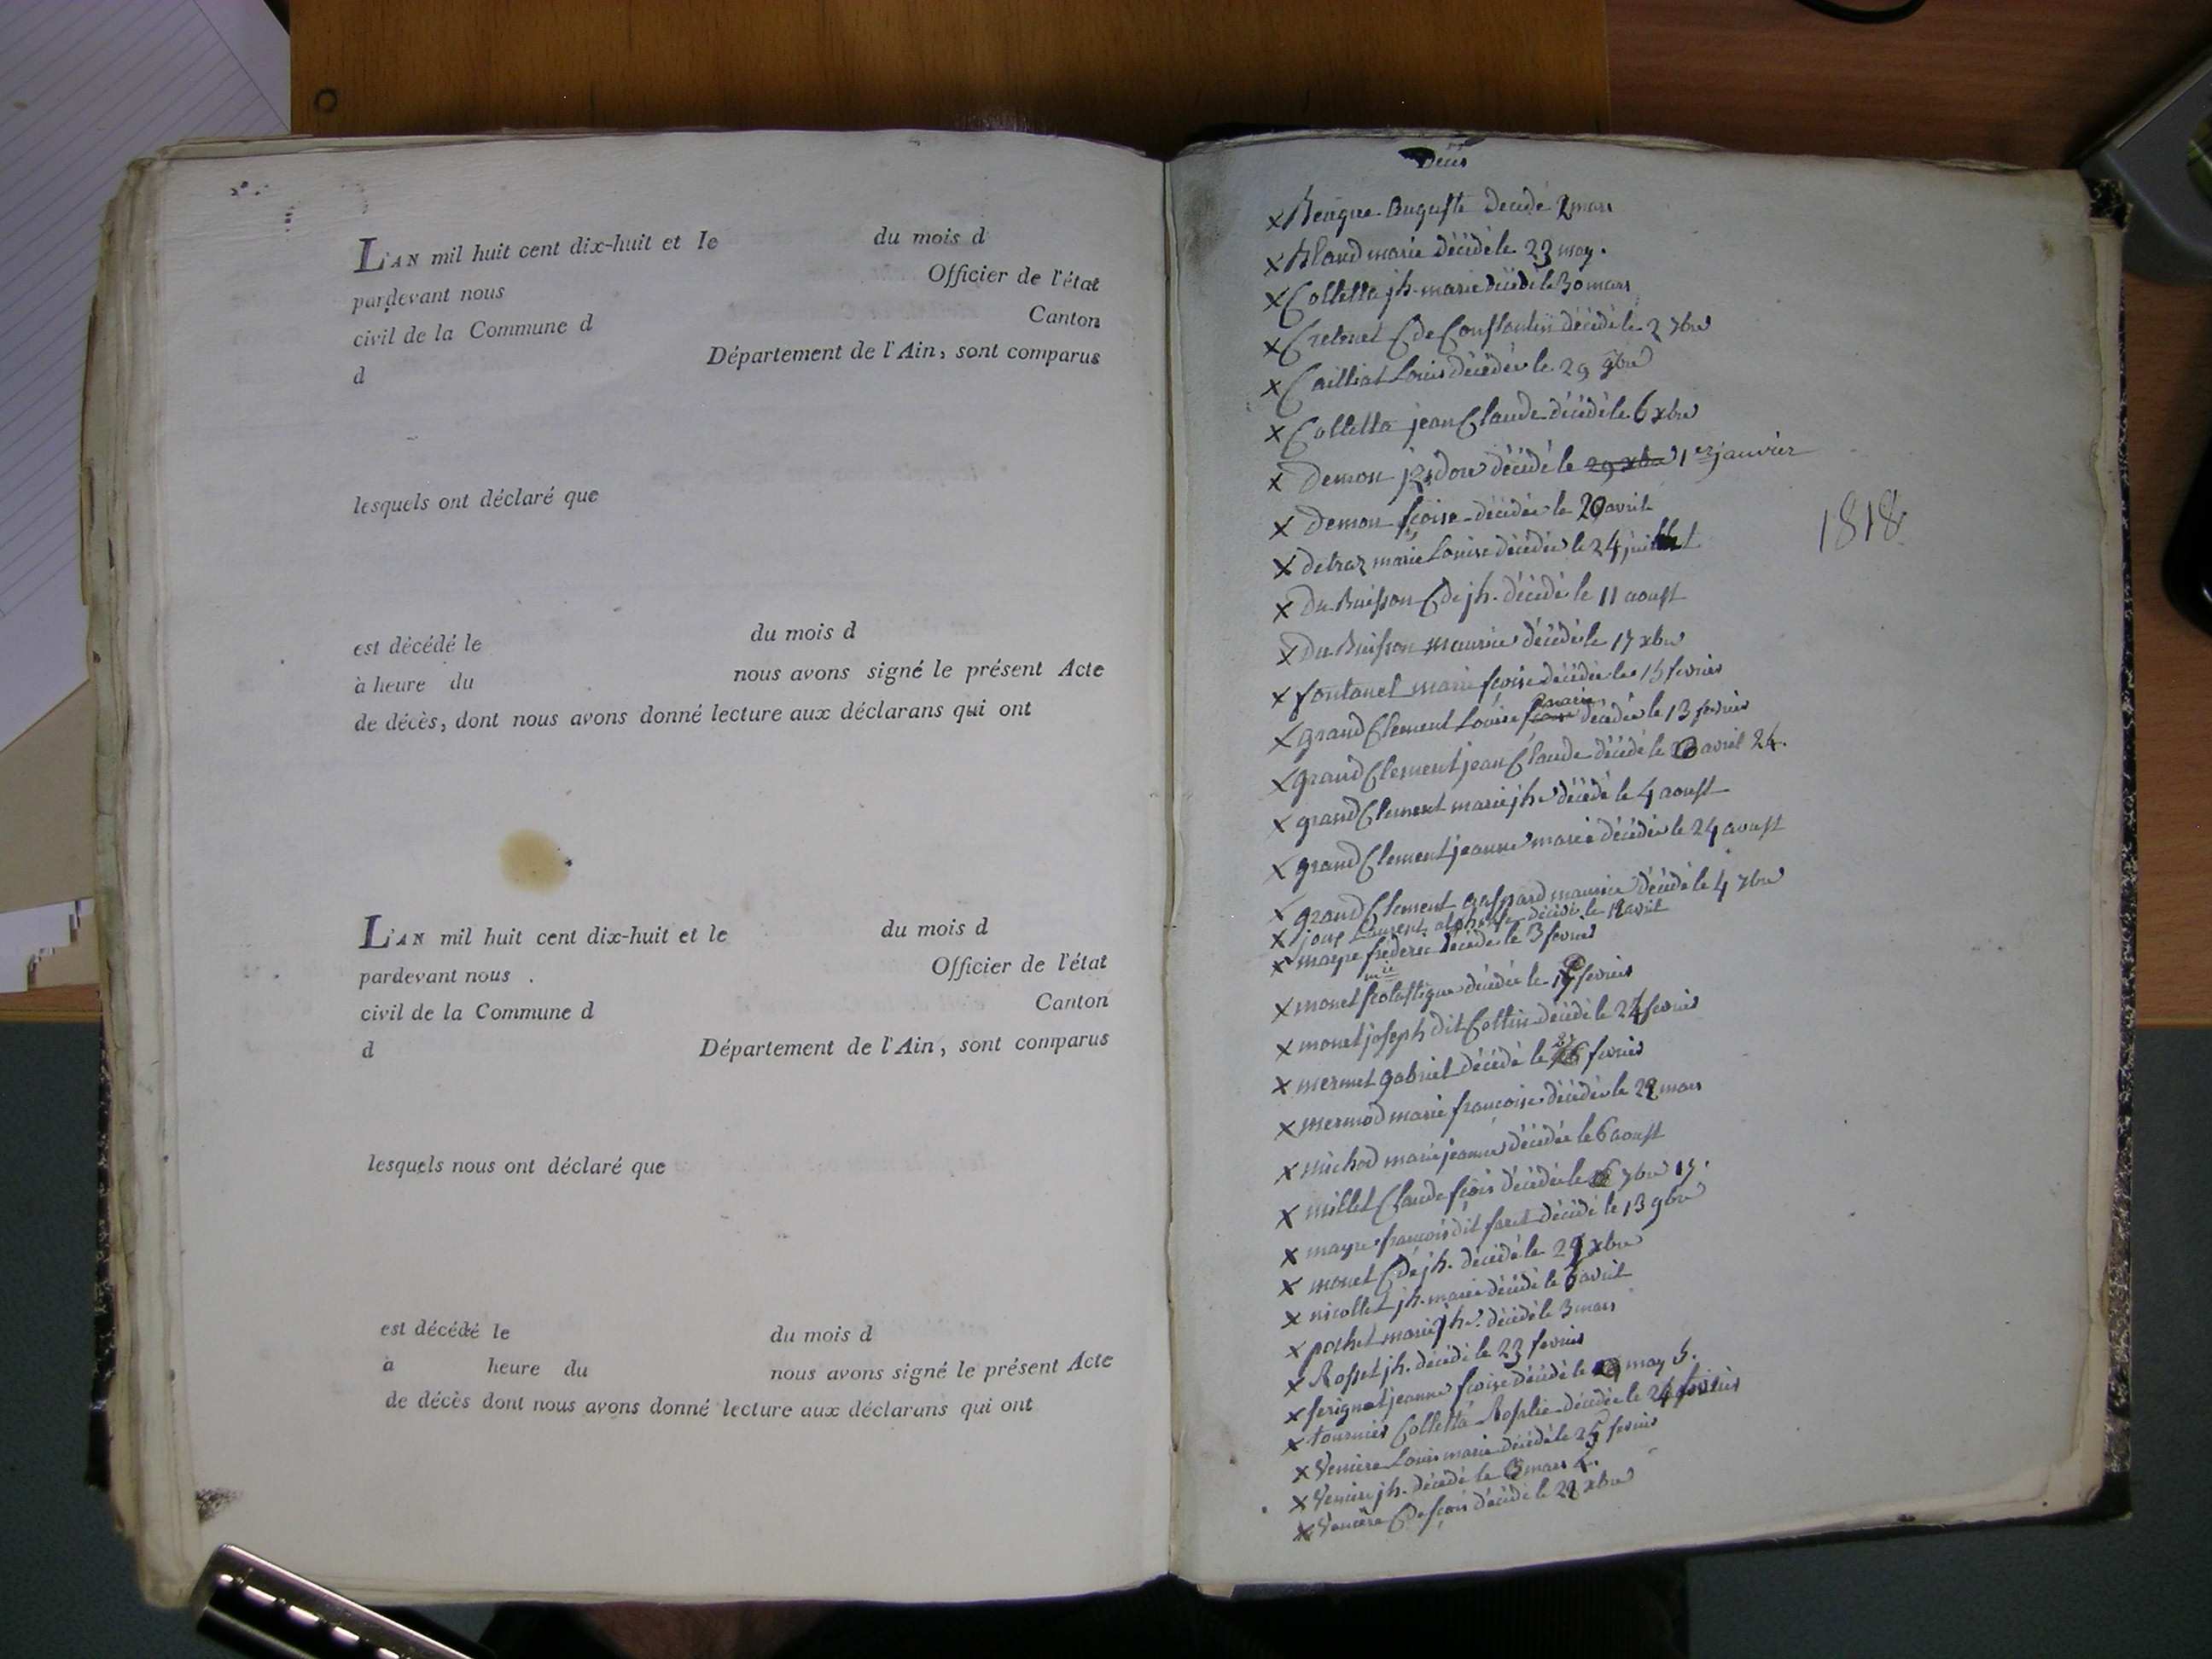 L'AN mil huit cent dix-huit et le du mois d
pardevant nous Officier de l'état
civil de la Commune d Canton
d Département de l'Ain, sont comparus
lesquels ont déclaré que
est décédé le du mois d
à heure du nous avons signé le présent Acte
de décès, dont nous avons donné lecture aux déclarans qui ont
L'AN mil huit cent dix-huit et le du mois d
pardevant nous . Officier de l'état
civil de la Commune d Canton
d Département de l'Ain, sont comparus
lesquels nous ont déclaré que
est décédé le du mois d
à heure du nous avons signé le présent Acte
de décès dont nous avons donné lecture aux déclarans qui ont
Décès
x Auguste décédé 2 mars
x marie décédé le 23 may.
x Colletta jh. marie décédé le 30 mars
x Cretenet Cde Constantin décédé le 2 7bre
x Cailliat Louis décédé le 29 9bre
x Colletta jean Claude décédé le 6 xbre
x Demon décédé le 29 xbre 1er janvier
x Demon fçoise décédée le 20 avril
1818
x detraz marie Louise décédée le 24 juillet
x Du Buisson Cde jh. décédé le 11 aoust
x Du Buisson maurice décédé le 17 xbre
x fontanet marie fçoise décédée le 15 fevrier
x grand Clement Louise marie décédée le 13 fevrier
x grand Clement jean Claude décédé le avril 24.
x grand Clement marie jhe décédé le 4 aoust
x grand Clement jeanne marie décédée le 24 aoust
x grand Clement gaspard maurice décédé le 4 7bre
x Laurent alphonse décédé le avril
x mayre frederic décédé le 3 fevrier
x monet mie scolastique décédée le fevrier
x monet joseph dit Collin décédé le 24 fevrier
x mermet gabriel décédé le fevrier
x mermod marie francoise décédée le 22 mars
x michod marie jeanne décédée le 6 aoust
x millet Claude fçois décédé le 7bre 17.
x mayre francois dit décédé le 13 9bre
x monet Cde jh. décédé le 29 xbre
x nicollet jh. marie décédé le 6 avril
x pochet marie jhe. décédé le 3 mars
x Rosset jh. décédé le 23 fevrier
x jeanne fçoise décédé le may 5.
x tournier Colletta Rosalie décédée le 24 fevrier
x Venière Louis marie décédé le 25 fevrier
x Venière jh. décédé le mars
x Venière Cde fçois décédé le 22 xbre